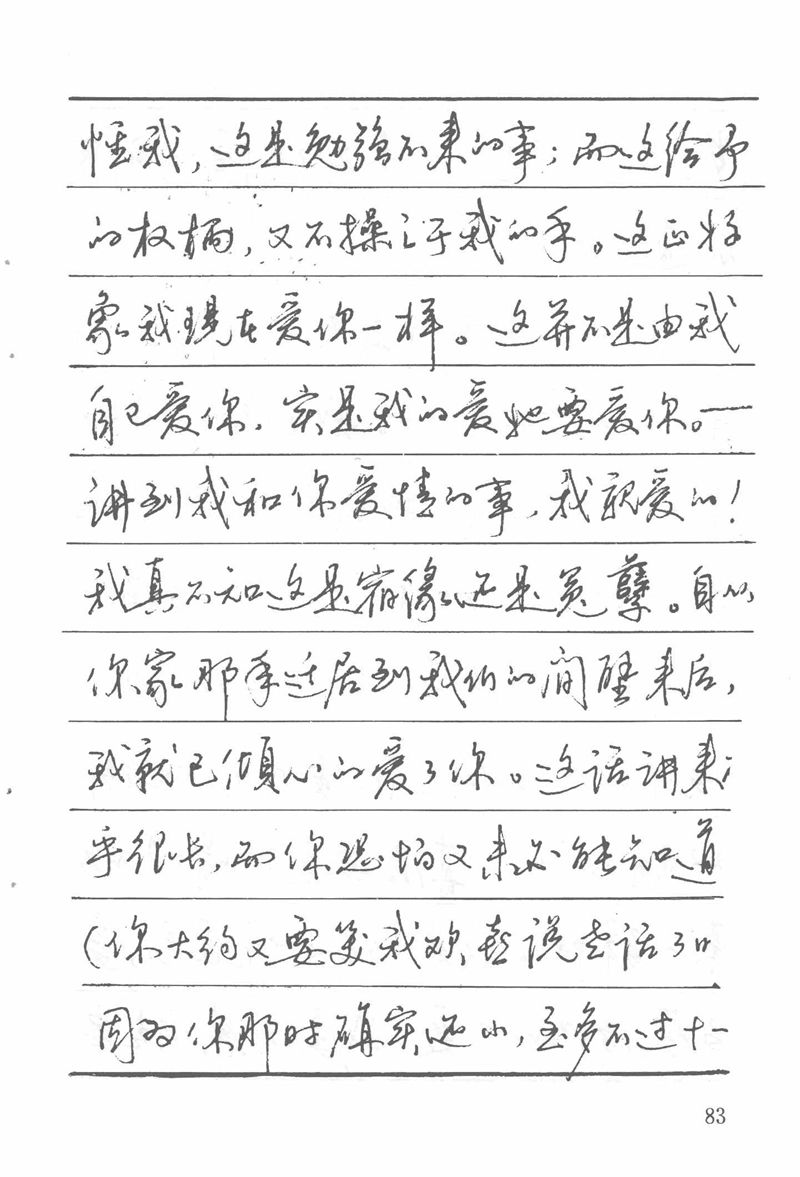 怪我，这是勉强不来的事；而这给予
的权柄，又不操之于我的手。这正好
象我现在爱你一样。这并不是由我
自己爱你，实是我的爱她要爱你。一
讲到我和你爱情的事，我亲爱的！
我真不知这是宿缘还是冤孽。自从
你家那年迁居到我们的间壁来后，
我就已倾心的爱了你。这话讲来
乎很长，而你恐怕又未必能知道
（你大约又要笑我欢喜说老话了
因为你那时确实还小，至多不过十一
83